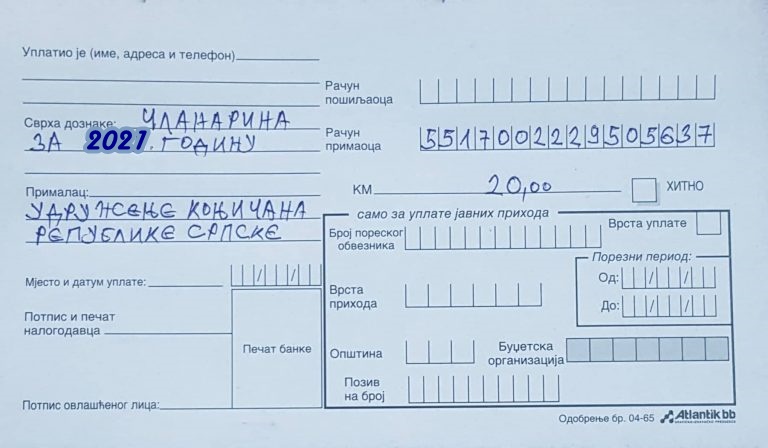 Уплатио је (име, адреса и телефон)
Рачун пошиљаоца
Сврха дознаке: ЧЛАНАРИНА
ЗА 2021. ГОДИНУ
Рачун примаоца 5517002229505637
Прималац:
УДРУЖЕЊЕ КОЊИЧАНА
РЕПУБЛИКЕ СРПСКЕ
КМ 20,00 ХИТНО
само за уплате јавних прихода
Број пореског обвезника
Врста уплате
Порезни период:
Од: / /
До: / /
Мјесто и датум уплате: / /
Врста прихода
Потпис и печат налогодавца
Печат банке
Општина
Буџетска организација
Позив на број
Потпис овлашћеног лица:
Одобрење бр. 04-65 Atlantik bb